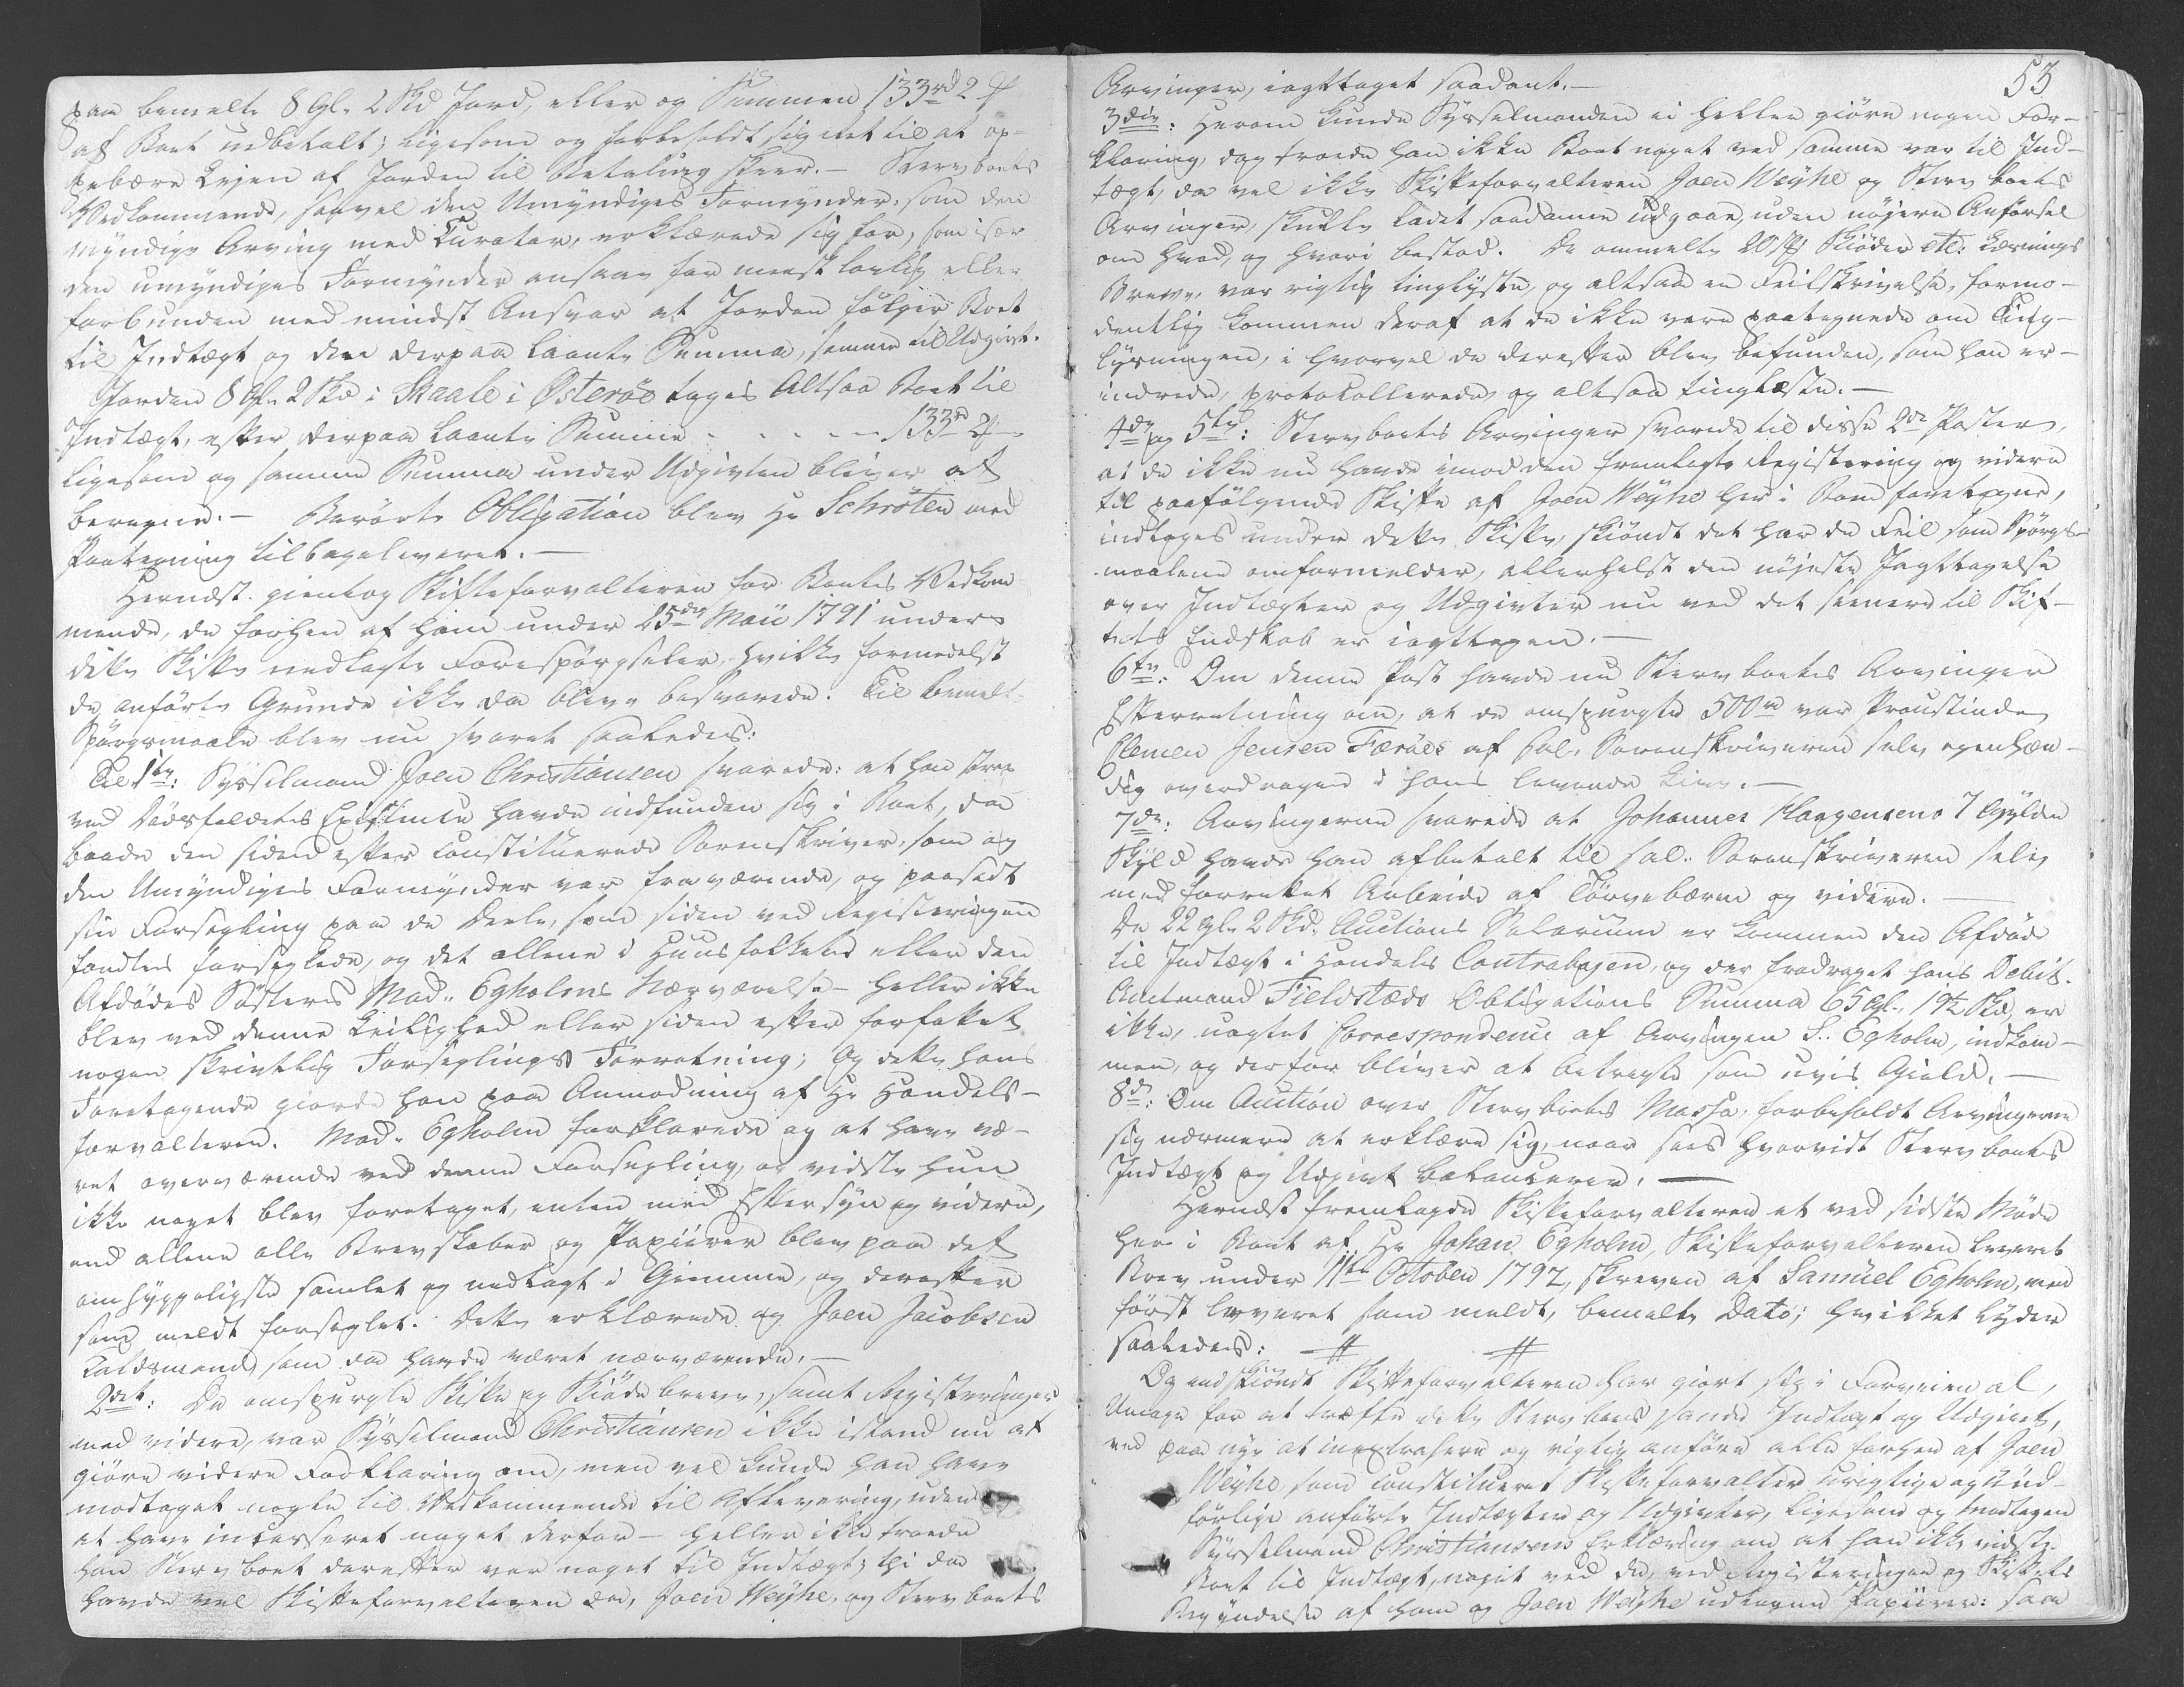 paa bemelte 8 Gl. 2 Skd Jord, eller og Summen 133rd 2
af Boet udbetalt; ligesom og forbeholdt sig Ret til at op-
pebære Lejen af Jorden til Betaling skeer. — Stervboets
Vedkommende, saavel den Umyndiges Formynder, som den
myndige Arving med Curator, erklærede sig for, som især
den umyndiges Formynder ansaae for meest lovlig eller
forbunden med mindst Ansvar at Jorden følger Boet
til Indtægt og den derpaa laante Summa, samme til Udgivt.
Jorden 8 Gl. 2 Skd i Skaale i Østerøe tages Altsaa Boet til
Indtægt, efter derpaa laante Summa - - - - 133rd 2
ligesom og samme Summa under Udgivten bliver at
beregne. — Berørte Obligation blev Hr Schrøter med
Paategning tilbageleveret. —
Hernæst gientog Skifteforvalteren for Boets Vedkom-
mende, de forhen af ham under 25de Maii 1791 under
dette Skifte nedlagte Forespørgseler, hvilke formedelst
de anførte Grunde ikke da bleve besvarede. Til bemelte
Spørgsmaale blev nu svaret saaledes:
Til 1te: Sysselmand Joen Christiansen svarede: at han strax
ved Dødsfaldets Existence havde indfunden sig i Boet, da
baade den siden efter constituerede Sorenskriver, som og
den Umyndiges Formynder var fraværende, og paasadt
sin Forsegling paa de Deele, som siden ved Registeringen
fandtes forseglede, og det allene i Huusfolkets eller den
Afdødes Søsters Mad. Egholms Nærværelse — heller ikke
blev ved denne Leilighed eller siden efter forfattet
nogen skrivtlig Forseglings Forretning; Og dette hans
Foretagende giorde han paa Anmodning af Hr Handels-
forvalteren. Mad. Egholm forklarede og at have væ-
ret overværende ved denne Forsegling, og vidste hun
ikke noget blev foretaget, enten med Eftersyn og videre,
end allene alle Brevskaber og Papiirer blev paa det
omhyggeligste samlet og nedlagt i Giemme, og derefter
som meldt forseglet. Dette erklærede og Joen Jacobsen
Kaldsmand som da havde været nærværende. —
2det: De omspurgte Skifte og Skiøde breve, samt Registeringer
med videre, var Sysselmand Christiansen ikke istand nu at
giøre videre Forklaring om, men vel kunde han have
modtaget nogle til Vedkommende til Aflevering, uden
at have incasseret noget derfor — heller ikke troede
han Stervboet derefter var noget til Indtægt; thi da
havde vel Skifteforvalteren da, Joen Weyhe, og Stervboets
53
Arvinger, iagttaget saadant. —
3die: Herom kunde Sysselmanden ei heller giøre nogen For-
klaring, dog troede han ikke Boet noget ved samme var til Ind-
tægt, da vel ikke Skifteforvalteren Joen Weyhe og Stervboets
Arvinger, skulle ladet saadanne udgaae, uden nøjere Anførsel
om hvad, og hvori bestod. De ommelte 20 Skiøder etc: Lavnings
Breve, var rigtig tinglyste, og altsaa en Feilskrivelse, formo-
dentlig kommen deraf at de ikke vare paategnede om Ting-
lysningen, i hvorvel de derefter blev befunden, som han er-
indrede, protokollerede og altsaa tinglæste. —
4de og 5te: Stervboets Arvinger svarede til disse 2de Poster,
at de ikke nu havde imod den fremlagte Registering og videre
til paafølgende Skifte af Joen Weyhe her i Boen foretagne,
indtages under dette Skifte, skiøndt det har de Feil som Spørgs-
maalene omformelder, allerhelst den nøjeste Jagttagelse
over Indtægter og Udgivter nu ved det seenere til Skif-
tets Endskab er iagttagen. —
6te: Om denne Post havde nu Stervboets Arvinger
Efterretning om, at de omspurgte 500rd var Proustinde
Clemen Jensen Færöes af Sal. Sorenskriveren selv egenhæn-
dig overdragen i hans levende Live. —
7de: Arvingerne svarede at Johannes Haagensens 7 Gylden
Skyld havde han afbetalt til sal. Sorenskriveren selv
med forrettet Arbeide af Tørvebæren og videre. —
De 22 Gl. 2 Skd. Auctions Salarium er kommen den Afdøde
til Indtægt i Handels Contrabogen, og der fradraget hans Debit.
Amtmand Fieldsteds Obligations Summa 65 Gl. 19½ Skd, er
ikke, uagtet Correspondence af Arvingen S. Egholm, indkom-
men, og derfor bliver at betragte som uvis Gield. —
8de: Om Auction over Stervboets Massa, forbeholdt Arvingerne
sig nærmere at erklære sig, naar sees hvorvidt Stervboets
Indtægt og Udgivt balancerer. —
Hernæst fremlagde Skifteforvalteren et ved sidste Møde
her i Boet af Hr Johan Egholm, Skifteforvalteren leveret
Brev under 11te October 1792, skreven af Samuel Egholm, men
først leveret som meldt, bemelte Dato; hvilket lyder
saaledes: # #
Og endskiøndt Skifteforvalteren har giort sig i Forveien al
Umage for at træffe dette Stervboes sande Indtægt og Udgivt,
ved paa nye at inextrahere og rigtig anføre alle forhen af Joen
Weyhe som constitueret Skifteforvalter urigtige og ufuld-
førlige anførte Indtægter og Udgivter, ligesom og modtagen
Sysselmand Christiansens Erklæring om at han ikke vidste
Boet til Indtægt, noget ved de, ved Registeringen og Skiftets
Begyndelse af ham og Joen Weyhe udtagne Papiirer: saa